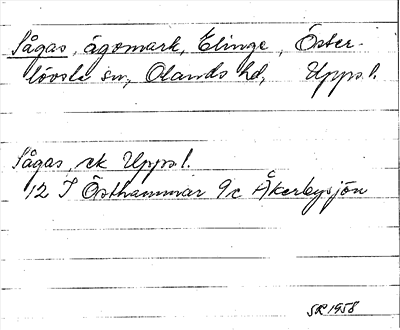 Sågas, ägomark, Elinge, Öster-
lövsta sn, Olands hd, Upps.l.
Sågas, ek Upps.l.
12 I Östhammar 9c Åkerbysjön
SR 1958